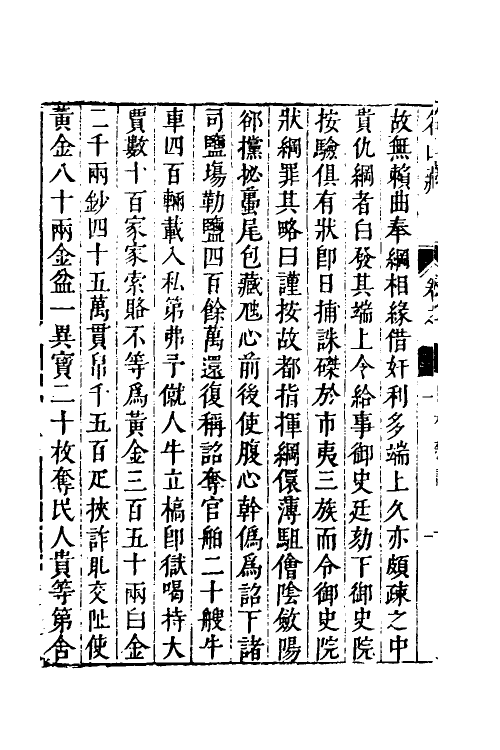 故無賴曲奉綱相緣借奸利多端上久亦頗疎之中
貴仇綱者白發其端上令給事御史廷劾下御史院
按驗俱有狀卽日捕誅磔於市夷三族而令御史院
狀綱罪其略曰謹按故都指揮綱儇薄駔儈陰斂陽
郤攩挱蠆尾包藏虺心前後使腹心幹僞爲詔下諸
司鹽塲勒鹽四百餘萬還復稱詔奪官舶二十艘牛
車四百輛載入私第弗予僦人牛立槁卽獄喝持大
賈數十百家家索賂不等爲黃金三百五十兩白金
二千兩鈔四十五萬貫帛千五百疋挾詐乩交阯使
黃金八十兩金盆一異寶二十枚奪民人貴等第舍